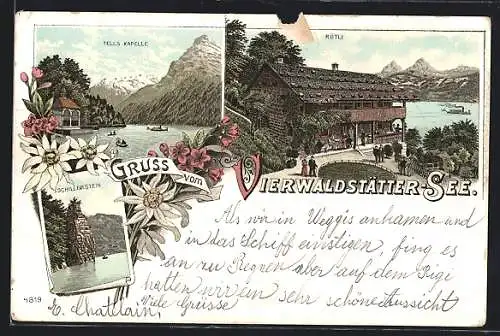 TELLS KAPELLE
RÜTLI
GRUSS vom
VIERWALDSTÄTTER-SEE.
SCHILLERSTEIN
Als wir in Weggis ankamen und
in das Schiff einstigen, fing es
an zu Regnen aber auf dem Rigi
hatten wir ein sehr schöne Aussicht
4819
E. Chatelain, Viele Grüsse